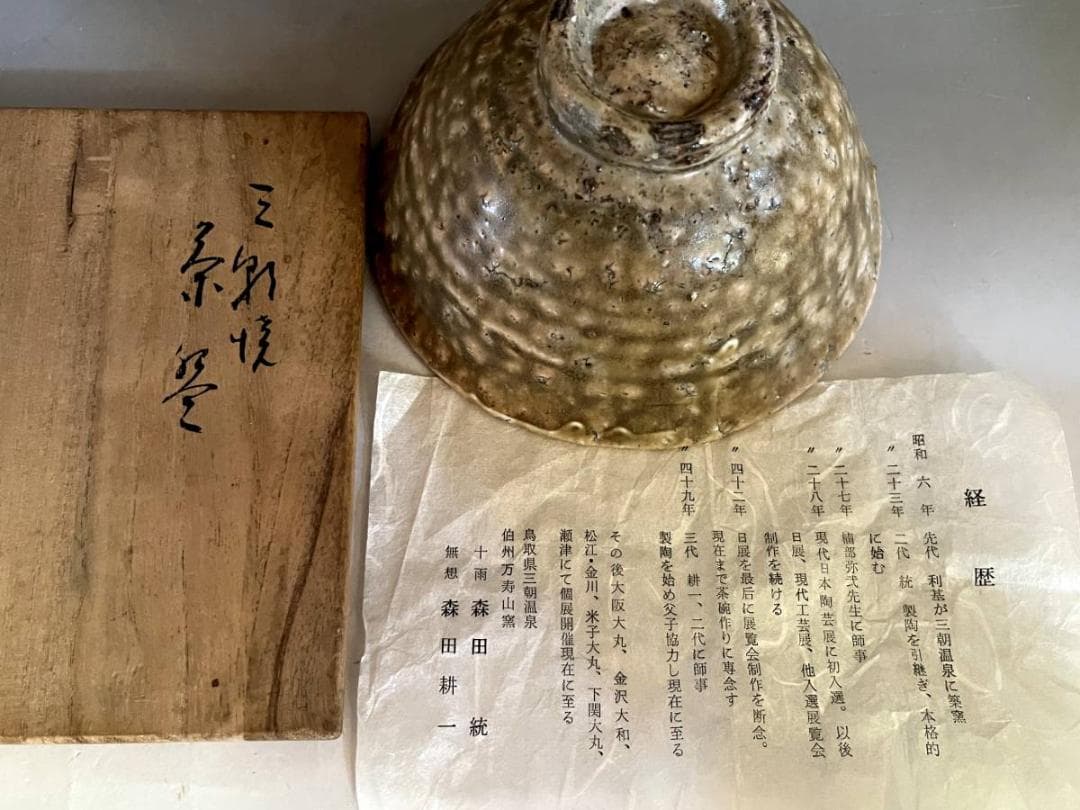 経歴
昭和六年 先代 利基が三朝温泉に築窯
〃二十三年 二代 統 製陶を引継ぎ、本格的
に始む
〃二十七年 楠部弥弌先生に師事
〃二十八年 現代日本陶芸展に初入選。以後
日展、現代工芸展、他入選展覧会
制作を続ける
〃四十二年 日展を最后に展覧会制作を断念。
現在まで茶碗作りに専念す
〃四十九年 三代 耕一、二代に師事
製陶を始め父子協力し現在に至る
その後大阪大丸、金沢大和、
松江・金川、米子大丸、下関大丸、
瀬津にて個展開催現在に至る
鳥取県三朝温泉
伯州万寿山窯
十雨 森田 統
無想 森田耕一
三朝焼
茶盌